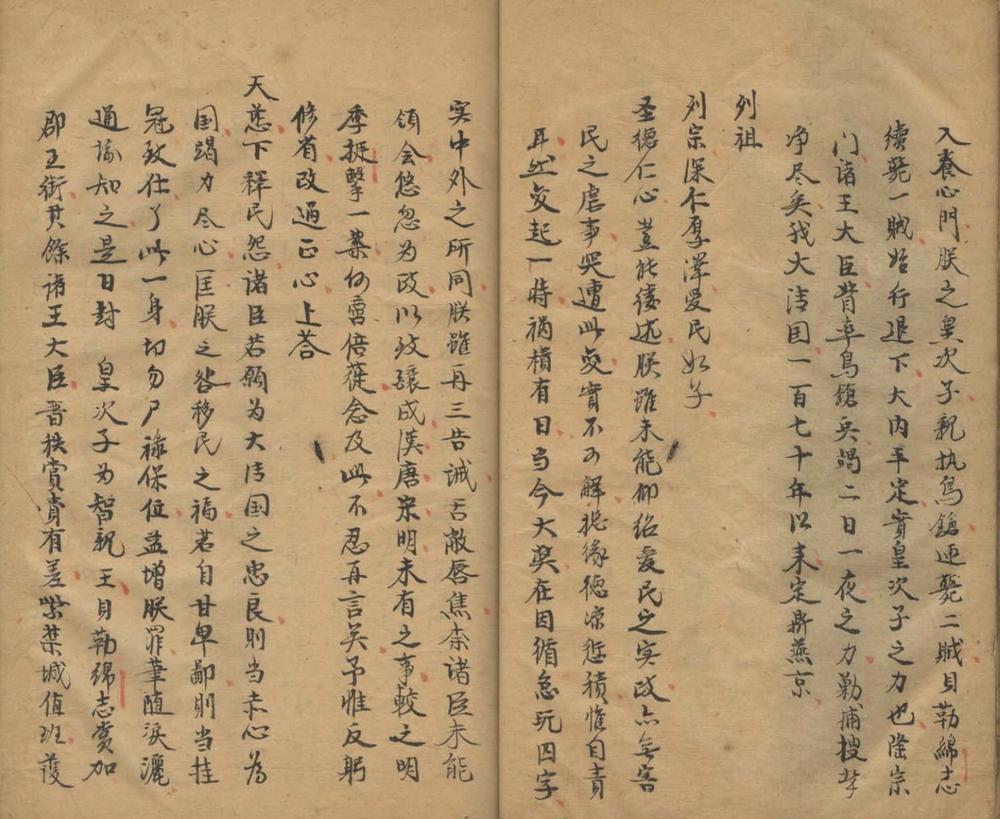 入养心門朕之皇次子親执鳥鎗連毙二贼貝勒綿志
續毙一贼始行退下大内平定實皇次子之力也隆宗
门諸王大臣督率鳥鎗兵竭二日一夜之力勦捕搜拏
净尽矣我大清国一百七十年以来定鼎燕京
列祖
列宗深仁厚澤愛民如子
圣德仁心豈能缕述朕雖未能仰绍爱民之实政亦無害
民之虐事突遭此变實不可解総缘德凉愆積惟自責
耳然变起一時祸積有日当今大獘在因循怠玩四字
实中外之所同朕雖再三告诫舌敝唇焦柰諸臣未能
领会悠忽为政以致釀成漢唐宋明未有之事較之明
季挺擊一案何啻倍蓰念及此不忍再言矣予惟反躬
修省改过正心上荅
天慈下释民怨諸臣若願为大清国之忠良則当赤心为
国竭力尽心匡朕之咎移民之福若自甘卑鄙則当挂
冠致仕了此一身切勿尸禄保位益增朕罪筆随淚灑
通諭知之是日封 皇次子为智親王貝勒綿志賞加
郡王銜其餘诸王大臣晋秩賞賚有差紫禁城值班護